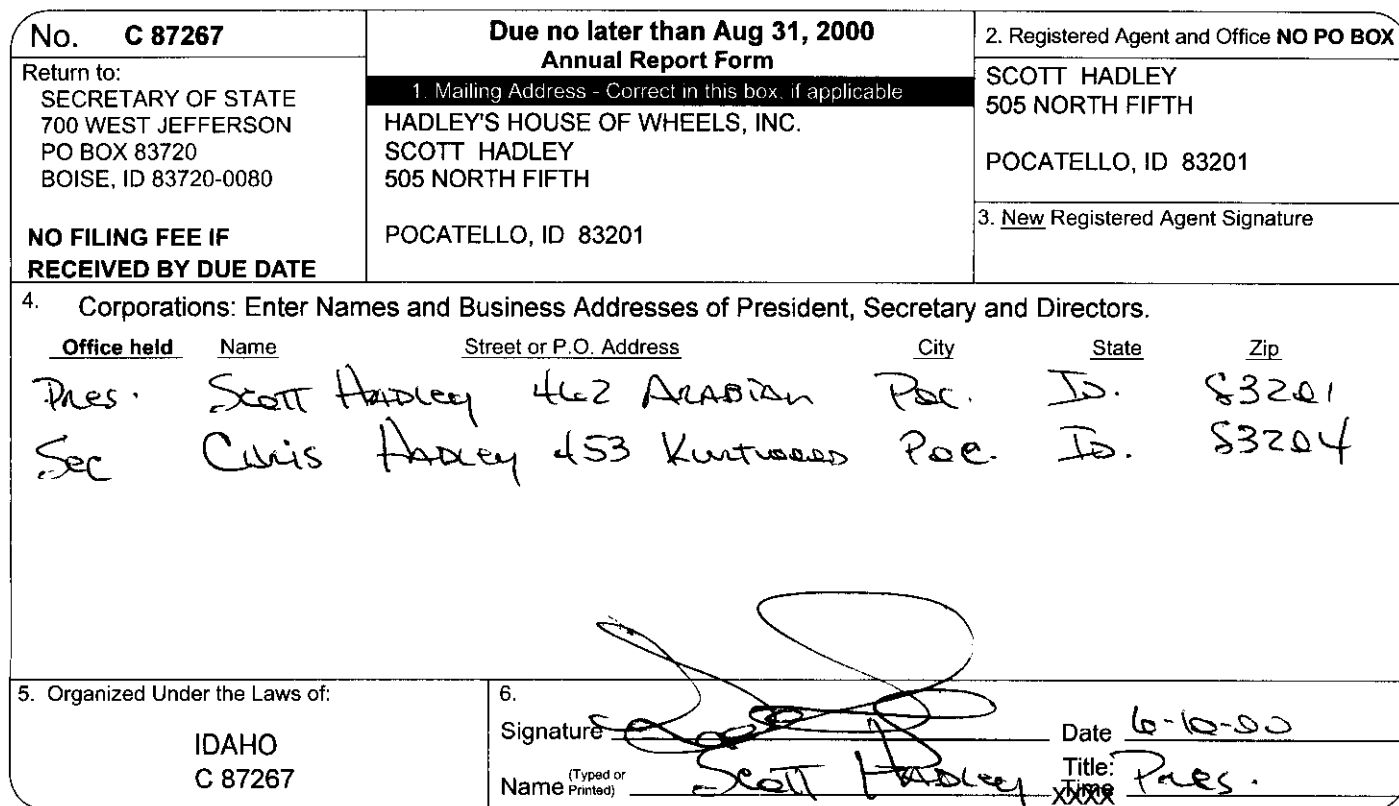 No. C 87267
Return to:
SECRETARY OF STATE
700 WEST JEFFERSON
PO BOX 83720
BOISE, ID 83720-0080
NO FILING FEE IF
RECEIVED BY DUE DATE
Due no later than Aug 31, 2000
Annual Report Form
1. Mailing Address - Correct in this box, if applicable
HADLEY'S HOUSE OF WHEELS, INC.
SCOTT HADLEY
505 NORTH FIFTH
POCATELLO, ID 83201
2. Registered Agent and Office NO PO BOX
SCOTT HADLEY
505 NORTH FIFTH
POCATELLO, ID 83201
3. New Registered Agent Signature
4. Corporations: Enter Names and Business Addresses of President, Secretary and Directors.
Office held Name Street or P.O. Address City State Zip
Pres. Scott Hadley 462 Arabian Poc. ID. 83201
Sec Chris Hadley 453 Kurtwood Poc. ID. 83204
5. Organized Under the Laws of:
IDAHO
C 87267
6.
Signature Date
Name (Typed or Printed) Scott Hadley Title: Pres.